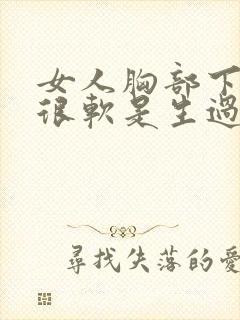 女人胸部下
很軟是生過
尋找失落的愛